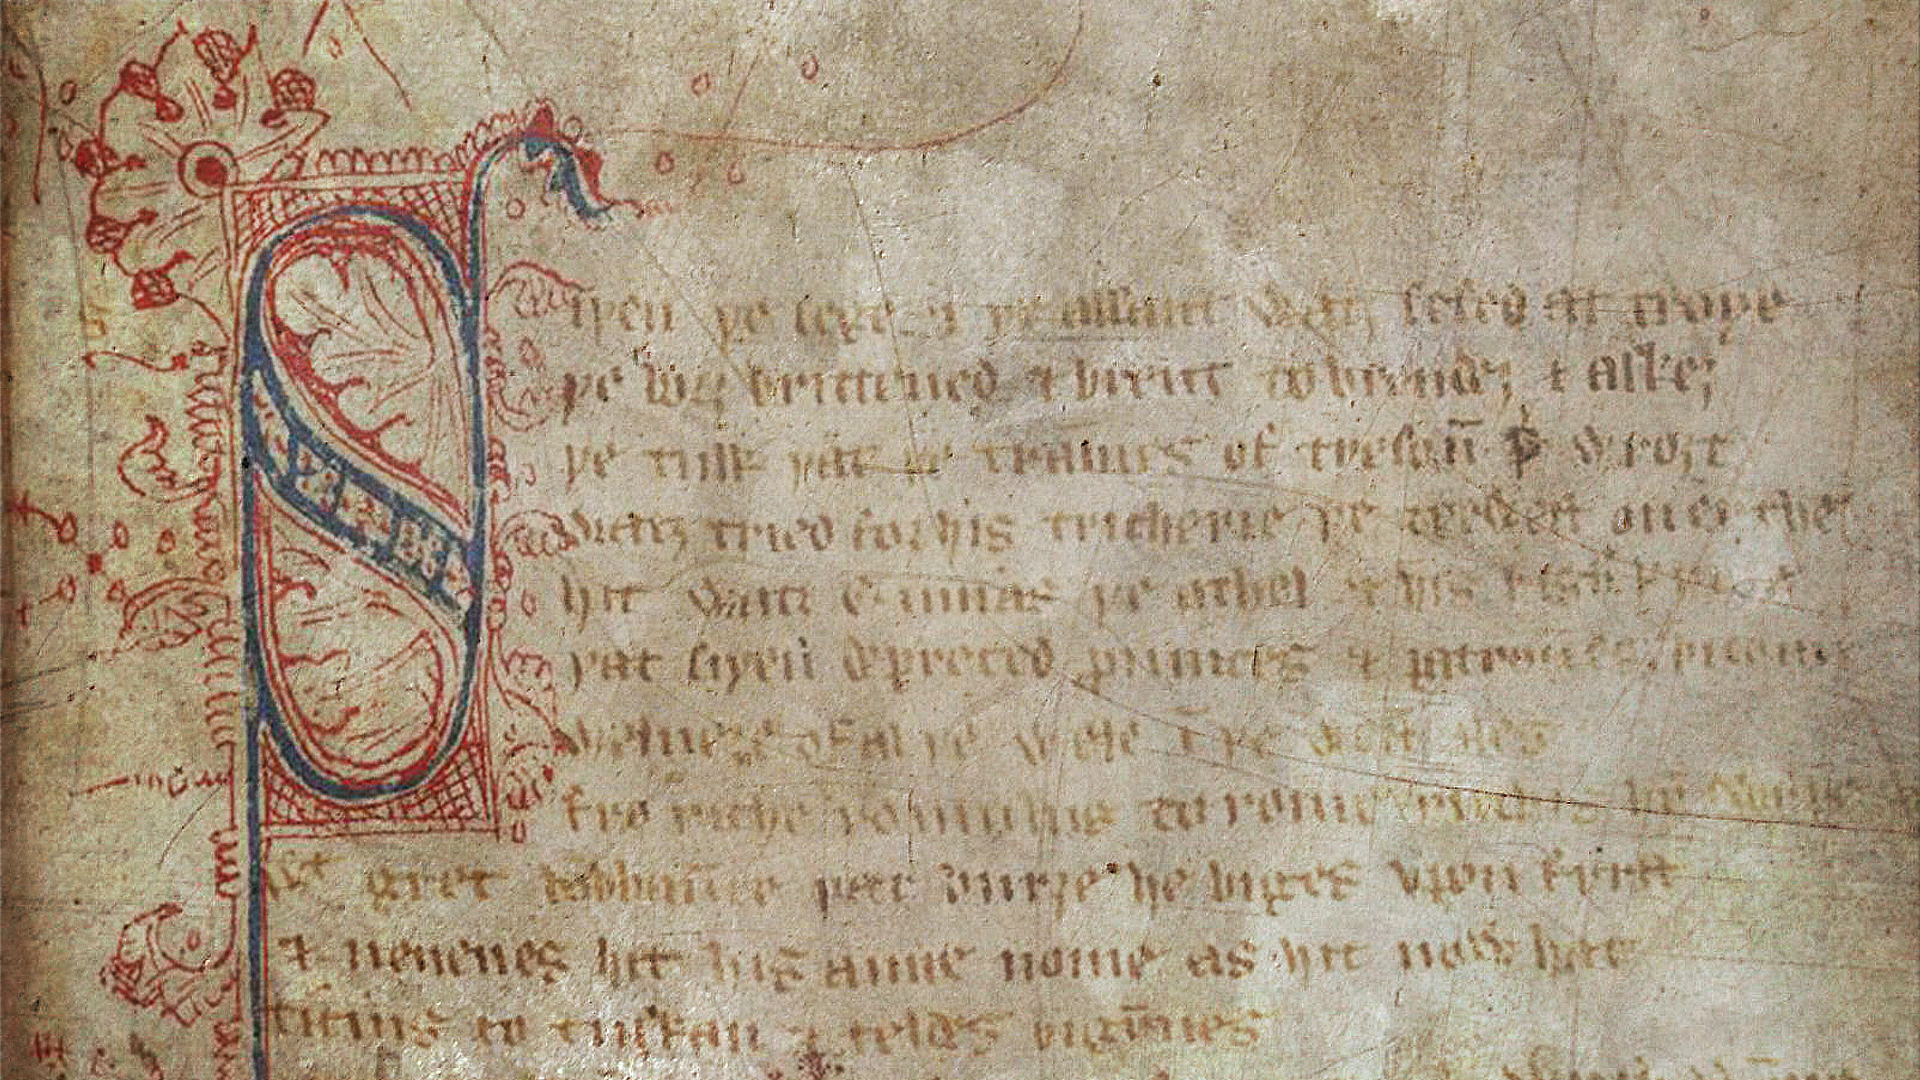 Siþen þe sege & þe assaut watȝ sesed at troye
þe borȝ brittened & brent to brondeȝ & askeȝ
þe tulk þat þe trammes of tresoū þ͛ wroȝt
watȝ tried for his tricherie þe trewest on erthe
hit watȝ Ennias þe athel & his highe kynde
þat siþen depreced prouinces & patrounes bicome
welneȝe of al þe wele ī þe west iles
fro riche romulus to rome ricchis hȳ swyþe
wᵗ gret bobbaūce þat burȝe he biges vpon fyrst
& neuenes hit his aune nome as hit now hat
ticius to tuskan & teldes bigȳnes